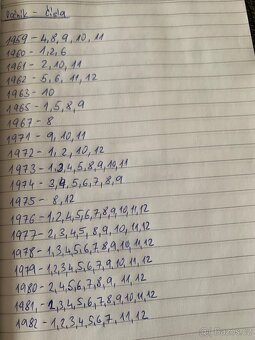 Ročník - čísla
1959 - 4, 8, 9, 10, 11
1960 - 1, 2, 6
1961 - 2, 10, 11
1962 - 5, 6, 11, 12
1963 - 10
1965 - 1, 5, 8, 9
1967 - 8
1971 - 9, 10, 11
1972 - 1, 2, 10, 12
1973 - 1, 3, 4, 5, 8, 9, 10, 11
1974 - 3, 4, 5, 6, 7, 8, 9
1975 - 8, 12
1976 - 1, 2, 4, 5, 6, 7, 8, 9, 10, 11, 12
1977 - 2, 3, 4, 5, 8, 9, 10, 11, 12
1978 - 1, 3, 4, 5, 6, 7, 8, 9, 10, 11, 12
1979 - 1, 2, 3, 4, 5, 6, 7, 9, 10, 11, 12
1980 - 2, 4, 5, 6, 7, 8, 9, 11, 12
1981 - 2, 3, 4, 5, 6, 7, 8, 9, 10, 11, 12
1982 - 1, 2, 3, 4, 5, 6, 7, 11, 12